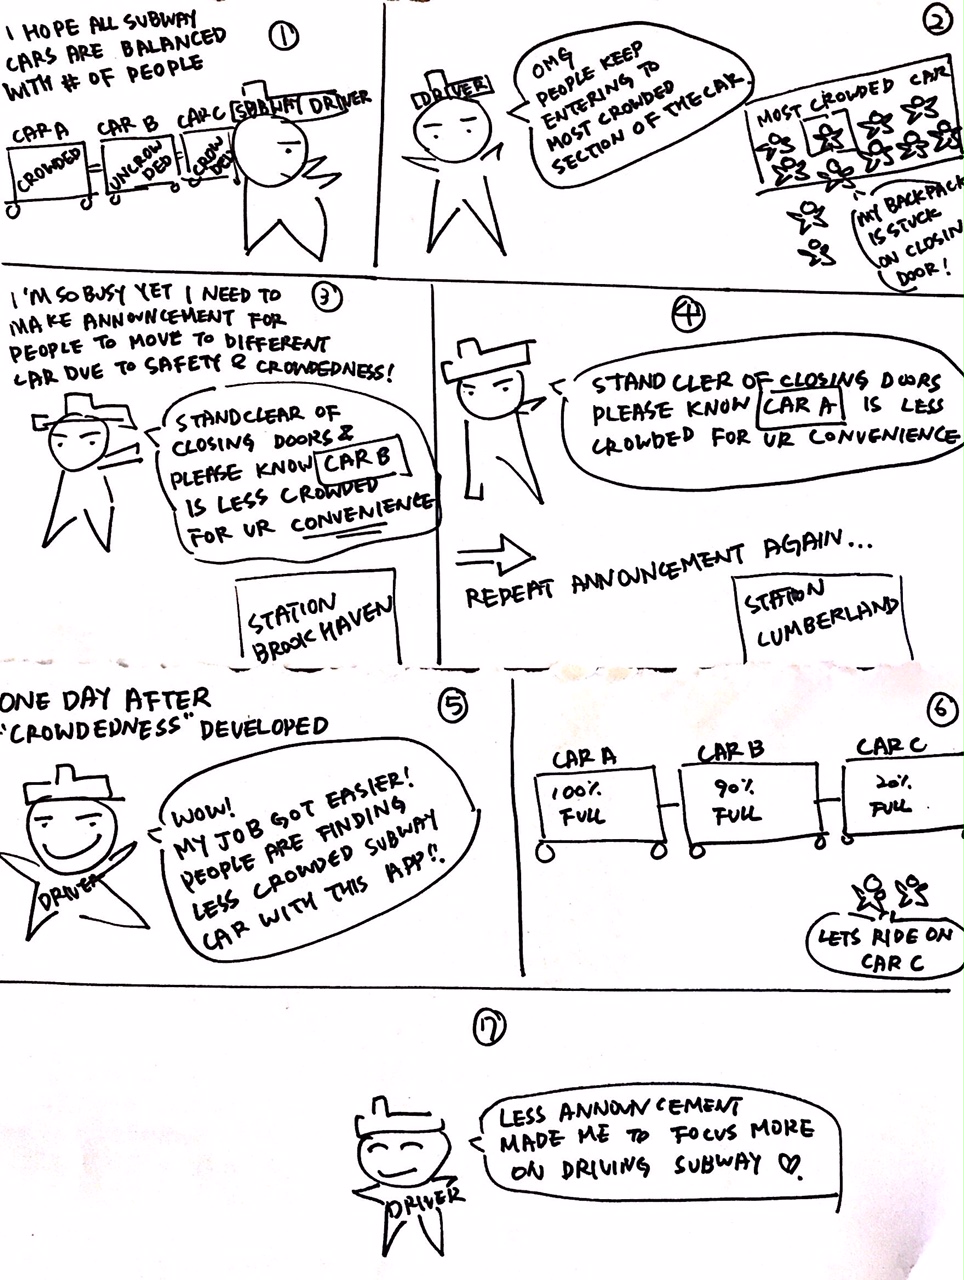 I HOPE ALL SUBWAY
CARS ARE BALANCED
WITH # OF PEOPLE
①
CAR A
CAR B
CAR C
SUBWAY DRIVER
CROWDED
UNCROW
DED
CROW
DED
②
DRIVER
OMG
PEOPLE KEEP
ENTERING TO
MOST CROWDED
SECTION OF THE CAR
MOST CROWDED CAR
MY BACKPACK
IS STUCK
ON CLOSIN
DOOR!
③
I'M SO BUSY YET I NEED TO
MAKE ANNOUNCEMENT FOR
PEOPLE TO MOVE TO DIFFERENT
CAR DUE TO SAFETY & CROWDEDNESS!
STAND CLEAR OF
CLOSING DOORS &
PLEASE KNOW CAR B
IS LESS CROWDED
FOR UR CONVENIENCE
STATION
BROOKHAVEN
④
STAND CLER OF CLOSING DOORS
PLEASE KNOW CAR A IS LESS
CROWDED FOR UR CONVENIENCE
REPEAT ANNOUNCEMENT AGAIN...
STATION
LUMBERLAND
⑤
ONE DAY AFTER
"CROWDEDNESS" DEVELOPED
DRIVER
WOW!
MY JOB GOT EASIER!
PEOPLE ARE FINDING
LESS CROWDED SUBWAY
CAR WITH THIS APP!!
⑥
CAR A
CAR B
CAR C
100%
FULL
90%
FULL
20%
FULL
LETS RIDE ON
CAR C
⑦
DRIVER
LESS ANNOUNCEMENT
MADE ME TO FOCUS MORE
ON DRIVING SUBWAY ♡.